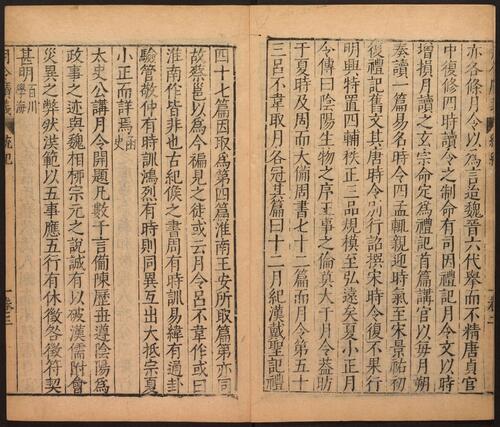 亦各條月令以為言造魏晉六代舉而不精唐貞官
中復修四時讀令之制命有司因禮記月令文以時
增損月讀之玄宗命定為禮記首篇講官以每月朔
奏讀一篇易名時令四孟輒親迎時氣至宋景祐初
復禮記舊文其唐時令別行詔撰宋時令復不果行
明興特置四輔秩正三品規模至弘遠矣夏小正月
令傳曰陰陽生物之序王事之倫莫大于月令葢昉
于夏時及周而大僃周書七十二篇而月令第五十
三呂不韋取月各冠其篇曰十二月紀漢戴聖記禮
四十七篇因取為第四篇淮南王安所取篇第亦同
故蔡邕以為今褊見之徒或云月令呂不韋作或曰
淮南作皆非也古紀候之書周有時訓易緯有通卦
驗管敬仲有時訓鴻烈有時則同異互出大抵宗夏
小正而詳焉函史
太史公講月令開題凡數千言僃陳歷丗遵陰陽為
政事之迹與魏相柳宗元之說誠有以破漢儒附會
災異之弊狀洪範以五事應五行有休徵咎徵符契
甚明百川學海
統紀
一卷三